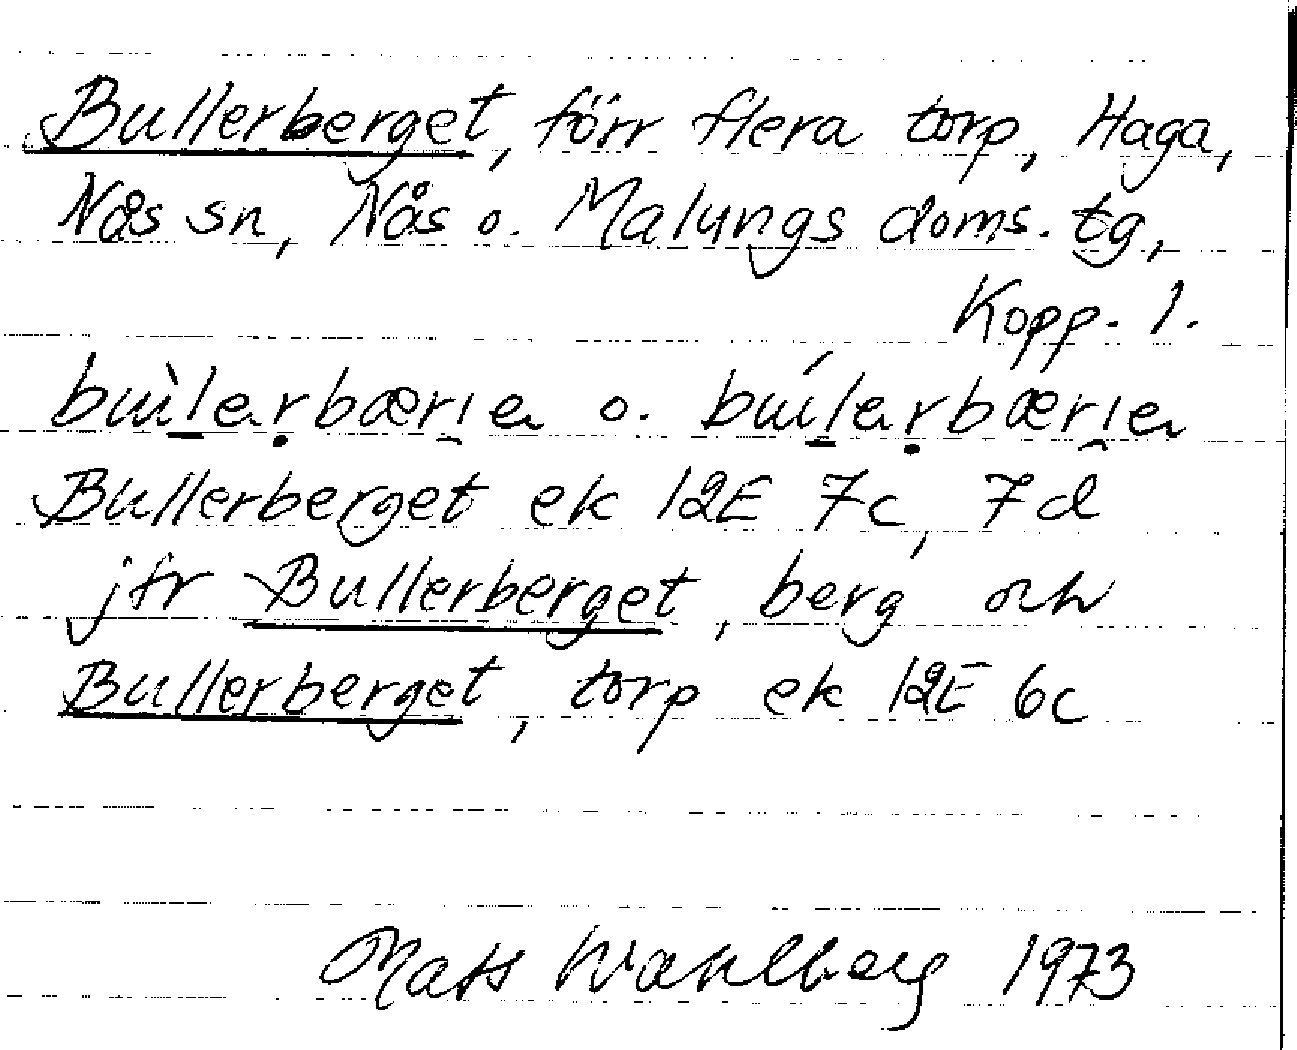 Bullerberget, förr flera torp, Haga,
Nås sn, Nås o. Malungs doms. tg,
Kopp. l.
bùlerbæri̯eɴ o. búlerbæri̯eɴ
Bullerberget ek 12E 7c, 7d
jfr Bullerberget, berg och
Bullerberget, torp ek 12E 6c
Mats Wahlberg 1973